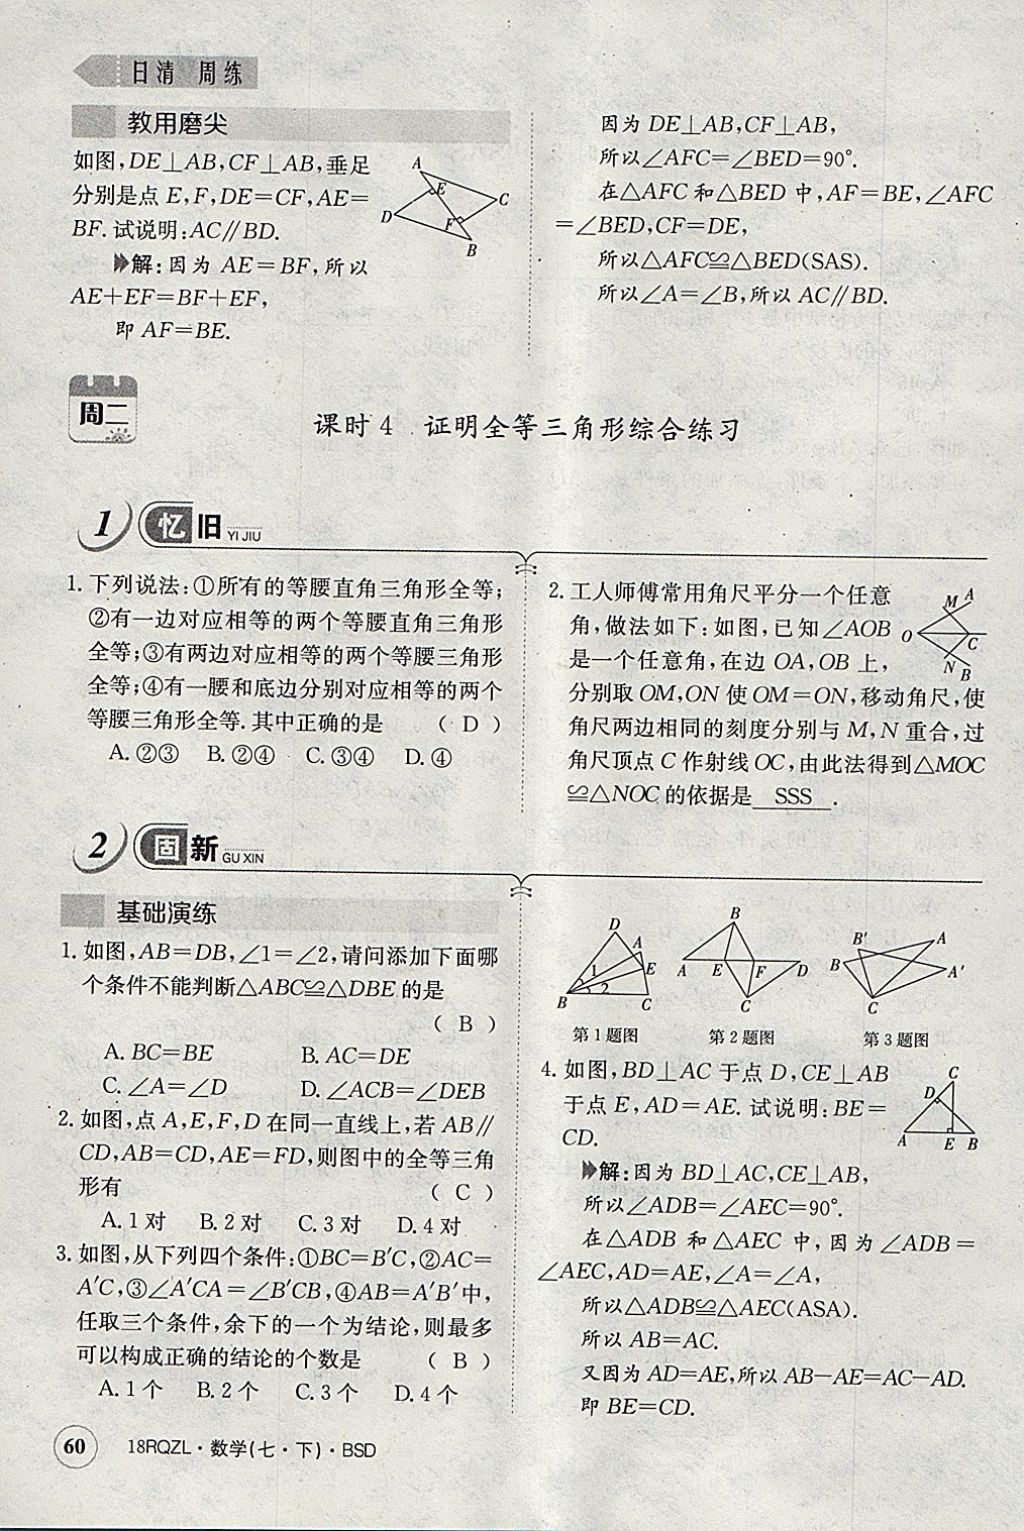 日清 周练
教用磨尖
如图,DE⊥AB,CF⊥AB,垂足
分别是点 E,F,DE=CF,AE=
BF.试说明:AC∥BD.
解:因为 AE=BF,所以
AE+EF=BF+EF,
即 AF=BE.
A
E
C
D
F
B
因为 DE⊥AB,CF⊥AB,
所以∠AFC=∠BED=90°.
在△AFC 和△BED 中,AF=BE,∠AFC
=∠BED,CF=DE,
所以△AFC≌△BED(SAS).
所以∠A=∠B,所以 AC∥BD.
周二
课时4 证明全等三角形综合练习
1 忆旧 YI JIU
1.下列说法:①所有的等腰直角三角形全等;
②有一边对应相等的两个等腰直角三角形
全等;③有两边对应相等的两个等腰三角形
全等;④有一腰和底边分别对应相等的两个
等腰三角形全等.其中正确的是 ( D )
A.②③ B.②④ C.③④ D.④
2.工人师傅常用角尺平分一个任意
角,做法如下:如图,已知∠AOB
是一个任意角,在边 OA,OB 上,
分别取 OM,ON 使 OM=ON,移动角尺,使
角尺两边相同的刻度分别与 M,N 重合,过
角尺顶点 C 作射线 OC,由此法得到△MOC
≌△NOC 的依据是 SSS .
M A
O
C
N B
2 固新 GU XIN
基础演练
1.如图,AB=DB,∠1=∠2,请问添加下面哪
个条件不能判断△ABC≌△DBE 的是
( B )
A.BC=BE B.AC=DE
C.∠A=∠D D.∠ACB=∠DEB
2.如图,点 A,E,F,D 在同一直线上,若 AB∥
CD,AB=CD,AE=FD,则图中的全等三角
形有 ( C )
A.1对 B.2对 C.3对 D.4对
3.如图,从下列四个条件:①BC=B′C,②AC=
A′C,③∠A′CA=∠B′CB,④AB=A′B′中,
任取三个条件,余下的一个为结论,则最多
可以构成正确的结论的个数是 ( B )
A.1个 B.2个 C.3个 D.4个
D
A
1 E
B 2 C
B
A E F D
C
B′ A
B A′
C
第1题图 第2题图 第3题图
4.如图,BD⊥AC 于点 D,CE⊥AB
于点 E,AD=AE.试说明:BE=
CD.
C
D
A E B
解:因为 BD⊥AC,CE⊥AB,
所以∠ADB=∠AEC=90°.
在△ADB 和△AEC 中,因为∠ADB=
∠AEC,AD=AE,∠A=∠A,
所以△ADB≌△AEC(ASA).
所以 AB=AC.
又因为 AD=AE,所以 AB-AE=AC-AD.
即 BE=CD.
60 18RQZL·数学(七·下)·BSD